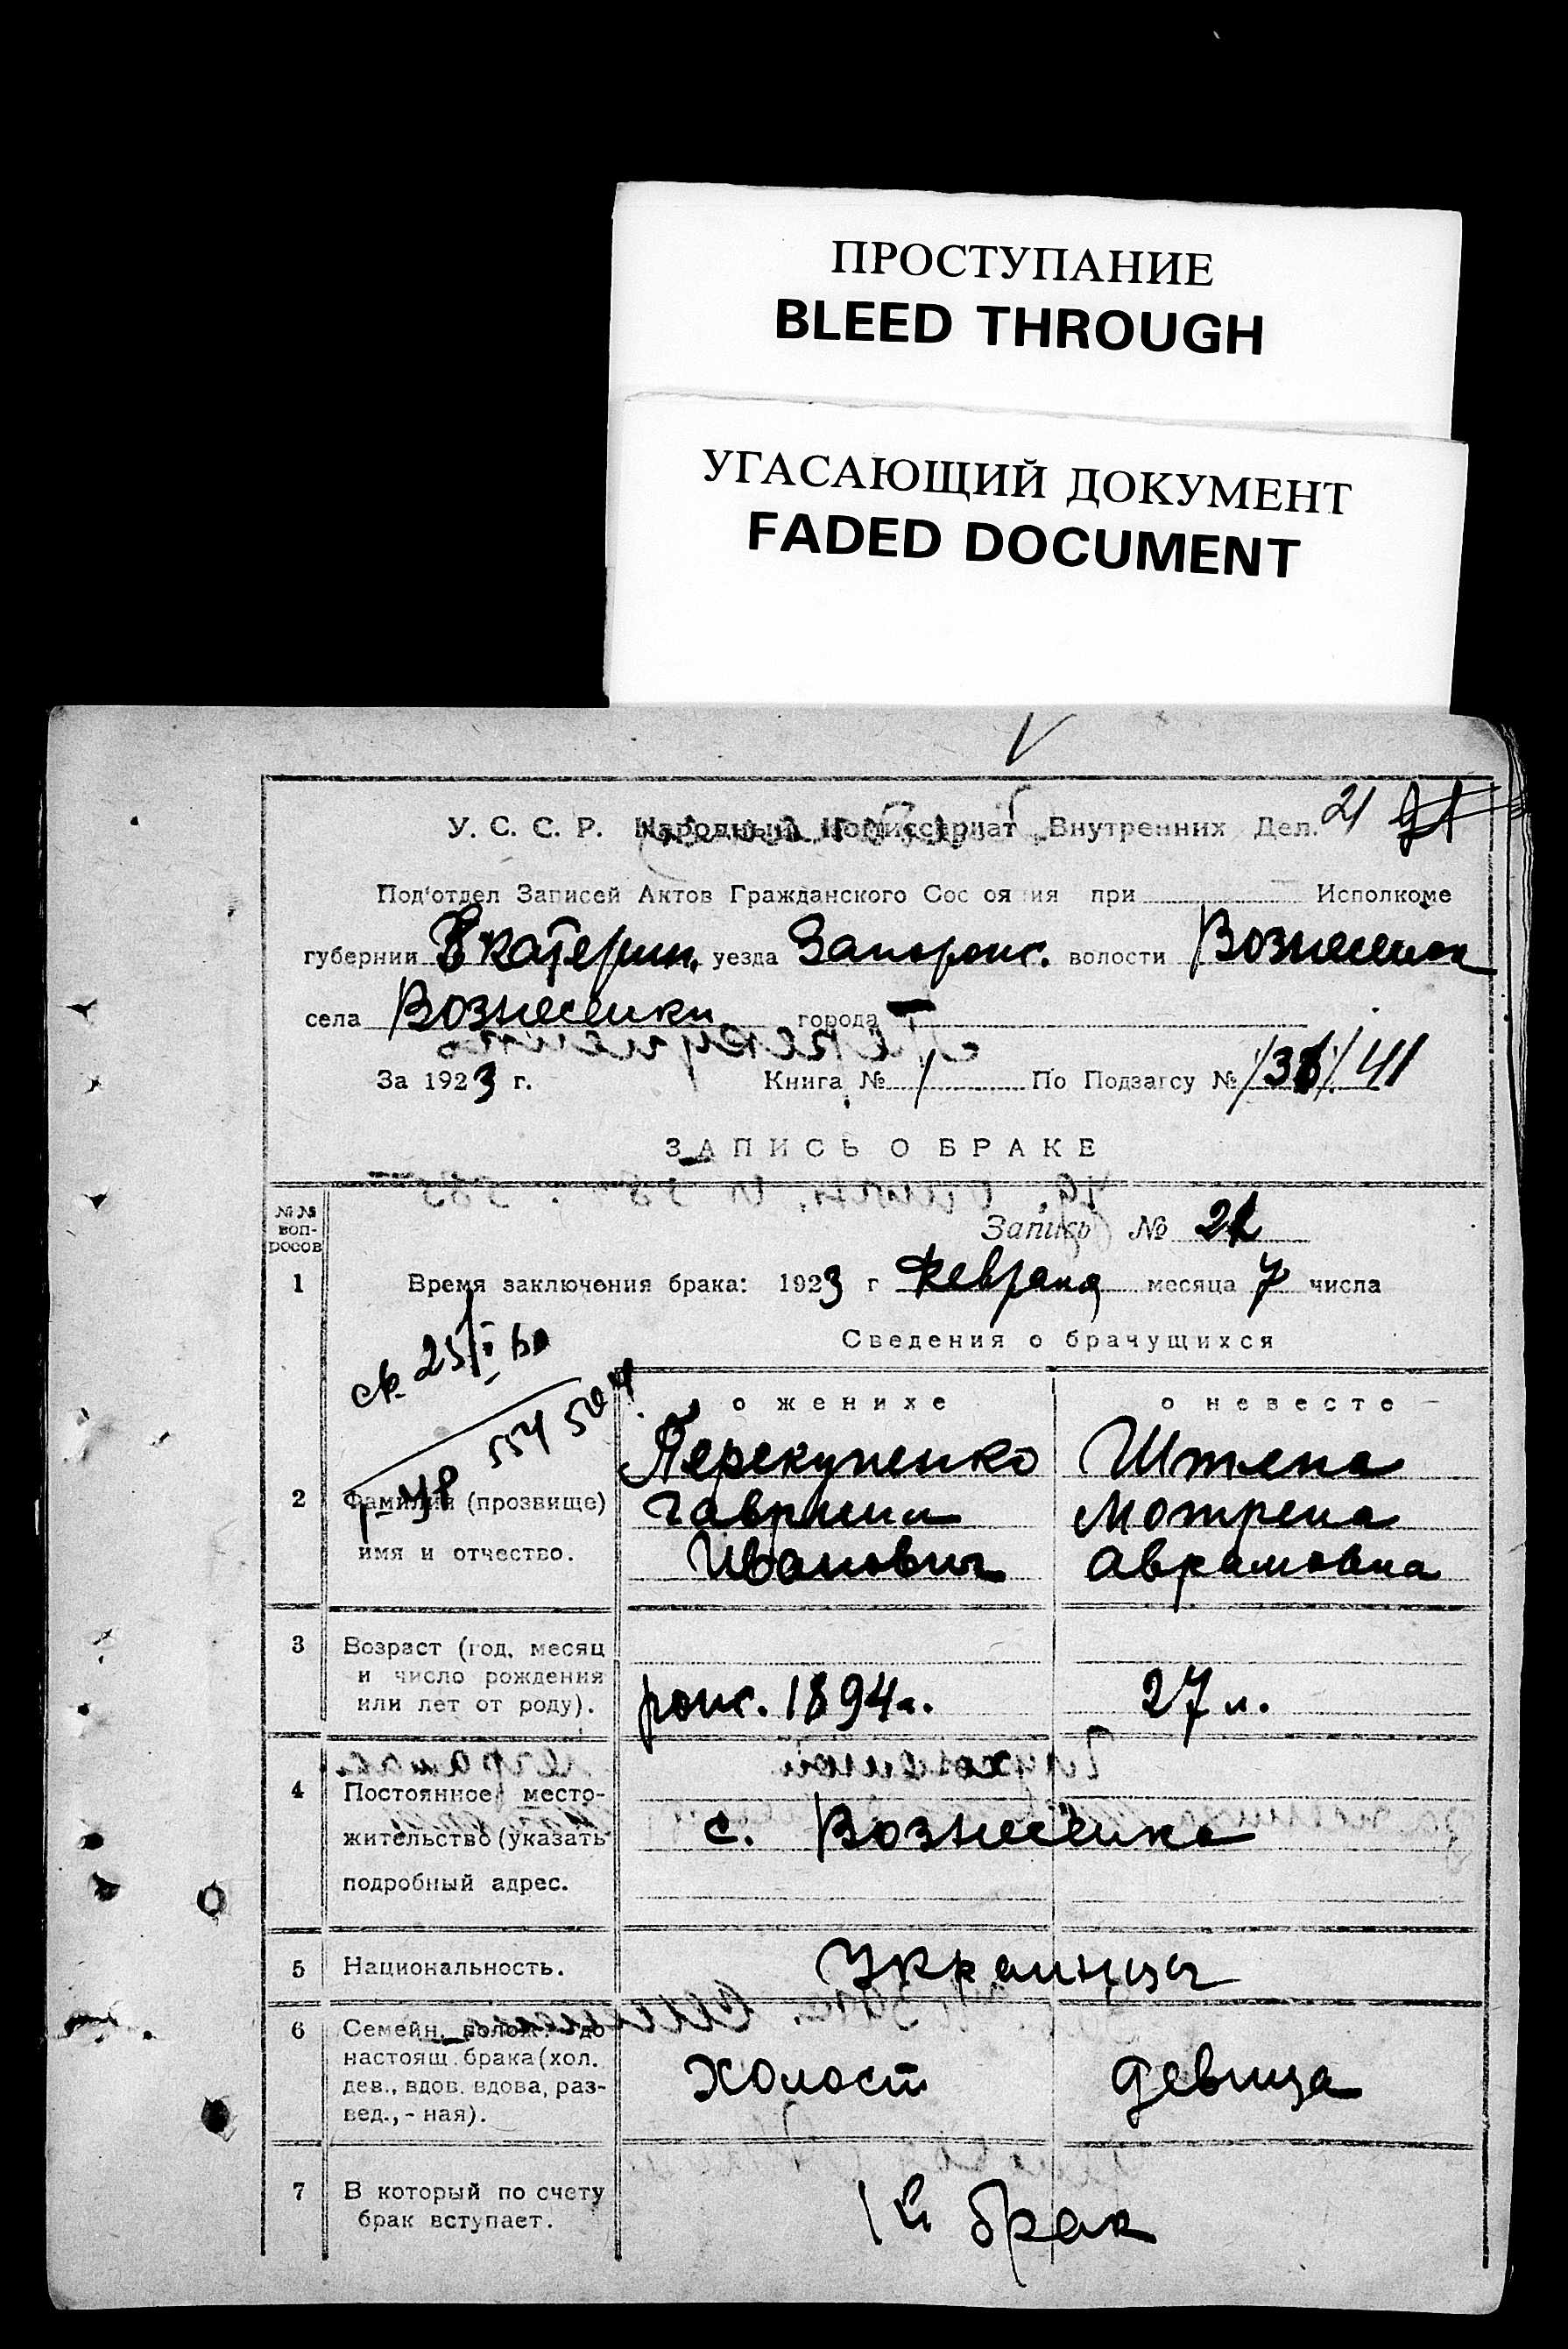 ПРОСТУПАНИЕ
BLEED THROUGH
УГАСАЮЩИЙ ДОКУМЕНТ
FADED DOCUMENT
У. С. С. Р. Народный Комиссариат Внутренних Дел. 21
Под'отдел Записей Актов Гражданского Сос оя ия при Исполкоме
губернии Екатерин. уезда Запорож. волости Вознесенск
села Вознесенки города —
За 1923 г. Книга № 1 По Подзагсу № 41
ЗАПИСЬ О БРАКЕ
№№ воп-росов
Запись № 21
1 Время заключения брака: 1923 г Февраля месяца 7 числа
Сведения о брачущихся
о женихе о невесте
Перекупенко Штепа
2 Фамилия (прозвище) Гавриил Мотрена
имя и отчество. Иванович Аврамовна
3 Возраст (год, месяц
и число рождения
или лет от роду). рож. 1894г. 27 л.
4 Постоянное место-
жительство (указать с. Вознесенка
подробный адрес.
5 Национальность. Украинцы
6 Семейн. полож. до
настоящ. брака (хол. холост девица
дев., вдов. вдова, раз-
вед., - ная).
7 В который по счету 1й брак
брак вступает.